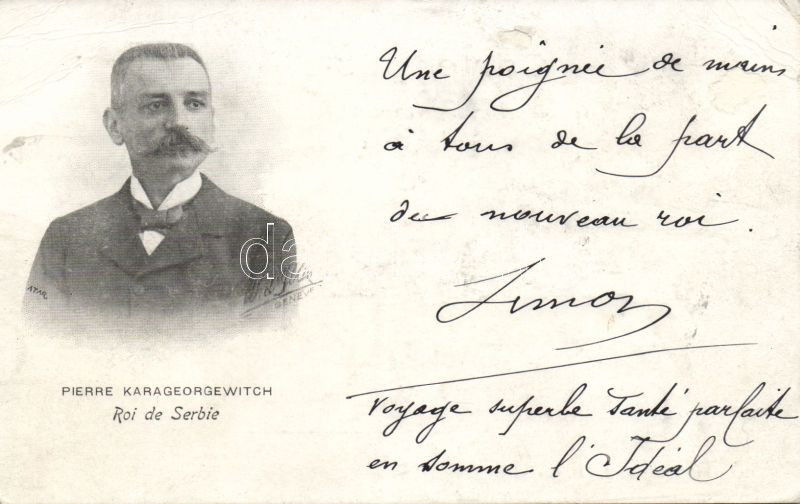 Une poignée de mains
à tous de la part
du nouveau roi.
Simon
GENÈVE
PIERRE KARAGEORGEWITCH
Roi de Serbie
Voyage superbe Santé parfaite
en somme l'Idéal